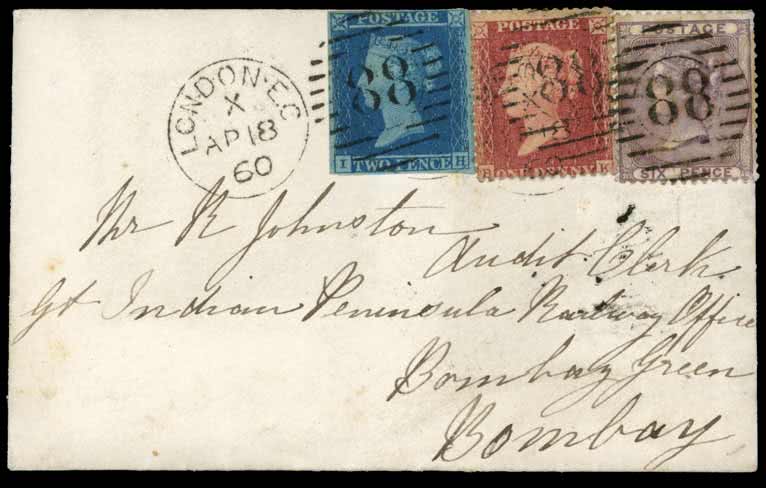 LONDON·E.C
X
AP 18
60
POSTAGE
88
I TWO PENCE H
POSTAGE
88
PENNY
POSTAGE
88
SIX PENCE
Mr R Johnston
Audit Clerk
Gt Indian Peninsula Railway Office
Bombay Green
Bombay